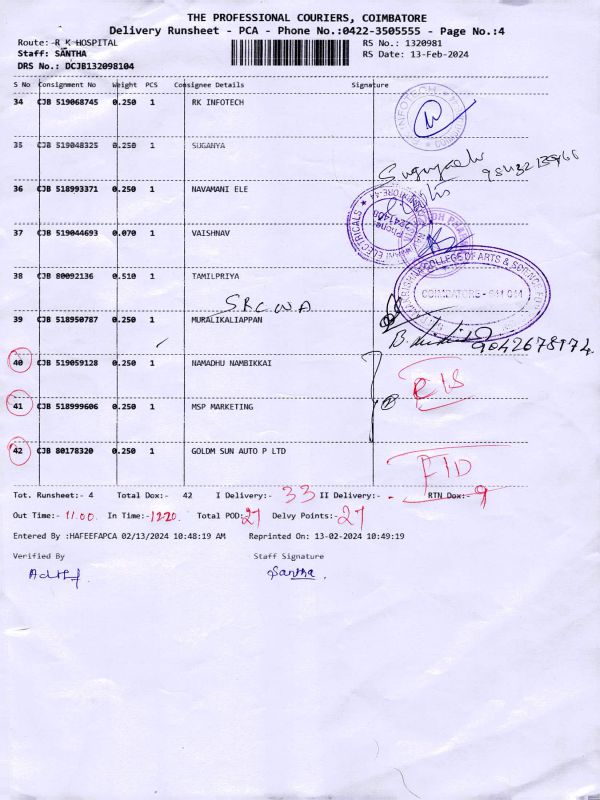 THE PROFESSIONAL COURIERS, COIMBATORE
Delivery Runsheet - PCA - Phone No.:0422-3505555 - Page No.:4
Route:-R K HOSPITAL RS No.: 1320981
Staff: SANTHA RS Date: 13-Feb-2024
DRS No.: DCJB132098104
S No Consignment No Weight PCS Consignee Details Signature
34 CJB 519068745 0.250 1 RK INFOTECH
35 CJB 519048325 0.250 1 SUGANYA
36 CJB 518993371 0.250 1 NAVAMANI ELE
37 CJB 519044693 0.070 1 VAISHNAV
38 CJB 80092136 0.510 1 TAMILPRIYA
COLLEGE OF ARTS & SCIENCE
COIMBATORE - 641 044
SRCWA
39 CJB 518950787 0.250 1 MURALIKALIAPPAN
9042678174
40 CJB 519059128 0.250 1 NAMADHU NAMBIKKAI
41 CJB 518999606 0.250 1 MSP MARKETING
42 CJB 80178320 0.250 1 GOLDM SUN AUTO P LTD
Tot. Runsheet:- 4 Total Dox:- 42 I Delivery:- 33 II Delivery:- - RTN Dox:- 9
Out Time:- 11.00. In Time:- 12.20. Total POD: 27 Delvy Points:- 27
Entered By :HAFEEFAPCA 02/13/2024 10:48:19 AM Reprinted On: 13-02-2024 10:49:19
Verified By Staff Signature
Santha.